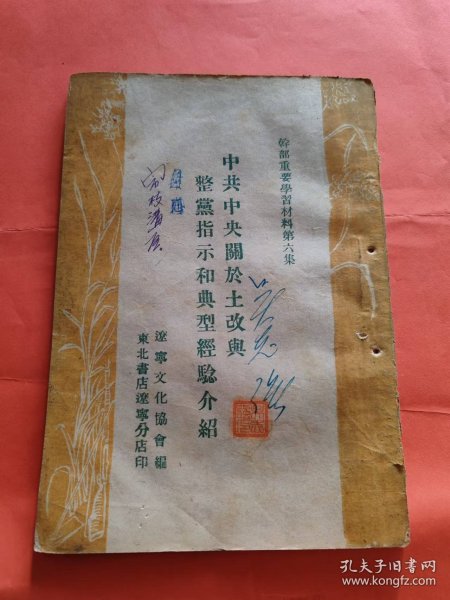 幹部重要學習材料第六集
中共中央關於土改與
整黨指示和典型經驗介紹
遼寧文化協會編
東北書店遼寧分店印
孔夫子旧书网
www.kongfz.com